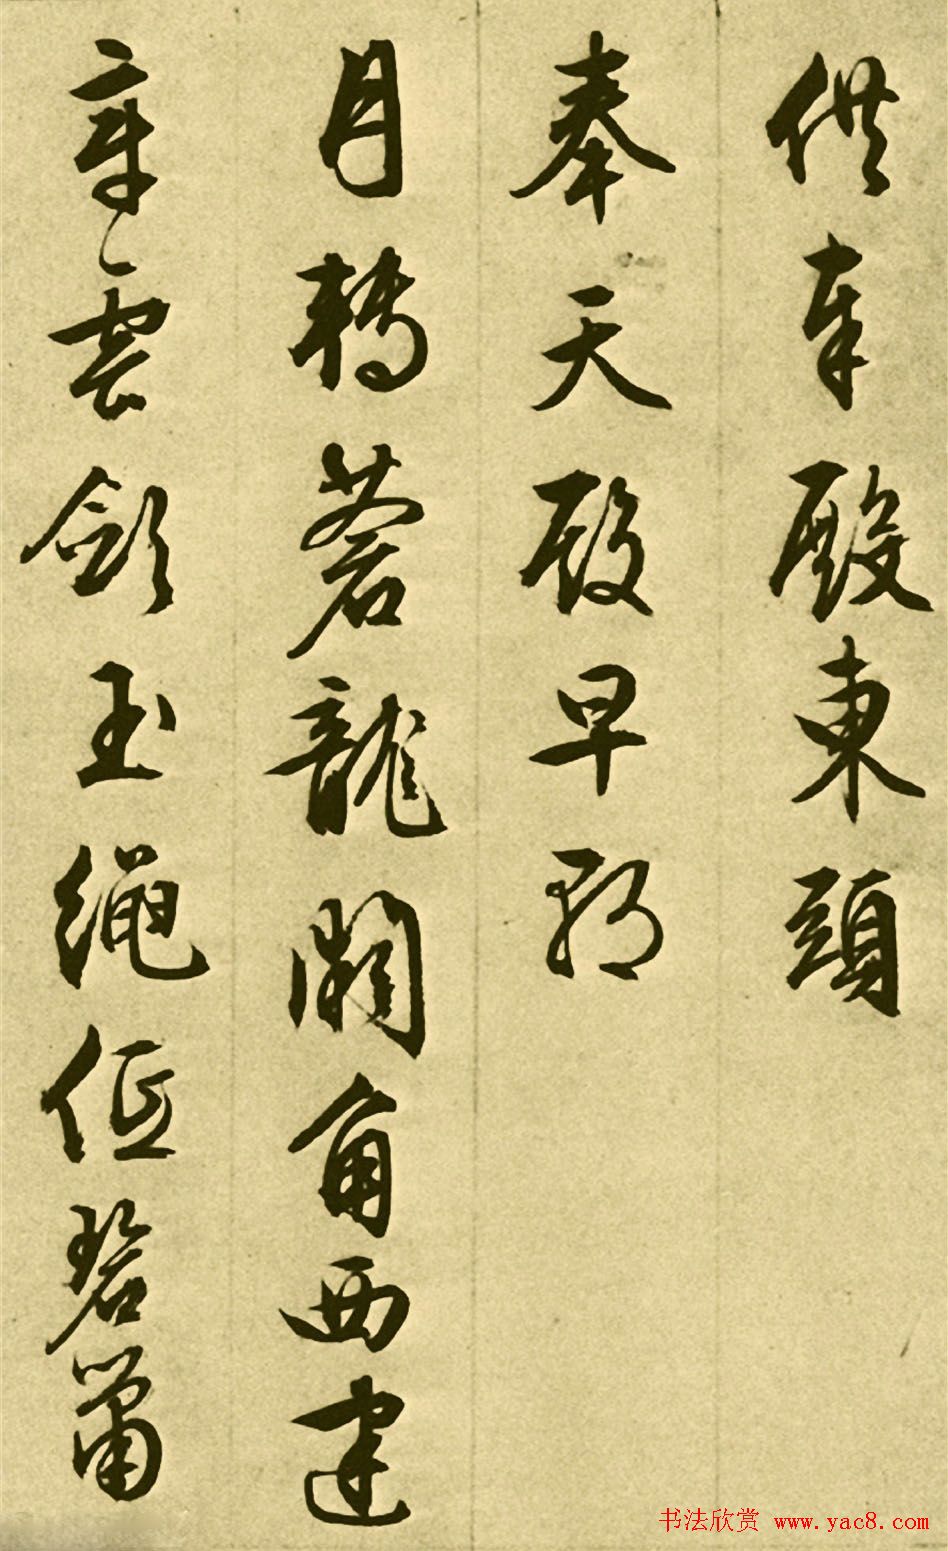 供殿東頭
奉天殿早朝
月轉蒼龍闕角西建
章雲斂玉繩低碧簫
书法欣赏 www.yac8.com